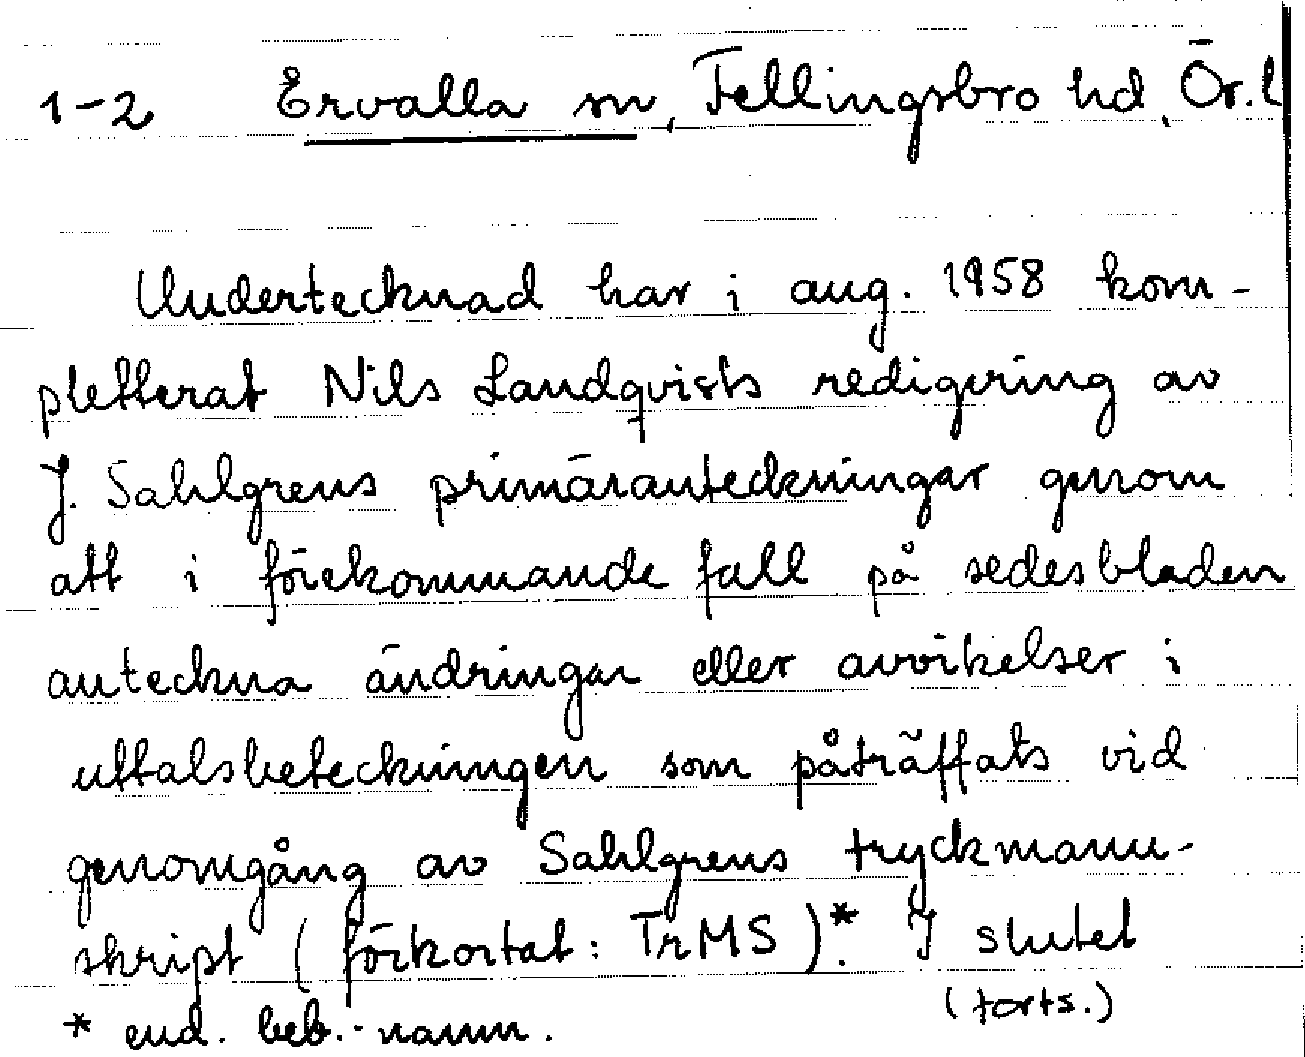 1-2 Ervalla sn, Fellingsbro hd, Ör.l
Undertecknad har i aug. 1958 kom-
pletterat Nils Landqvists redigering av
J. Sahlgrens primäranteckningar genom
att i förekommande fall på sedesbladen
anteckna ändringar eller avvikelser i
uttalsbeteckningen som påträffats vid
genomgång av Sahlgrens tryckmanu-
skript (förkortat: TrMS)*. I slutet
(forts.)
* end. beb.-namn.